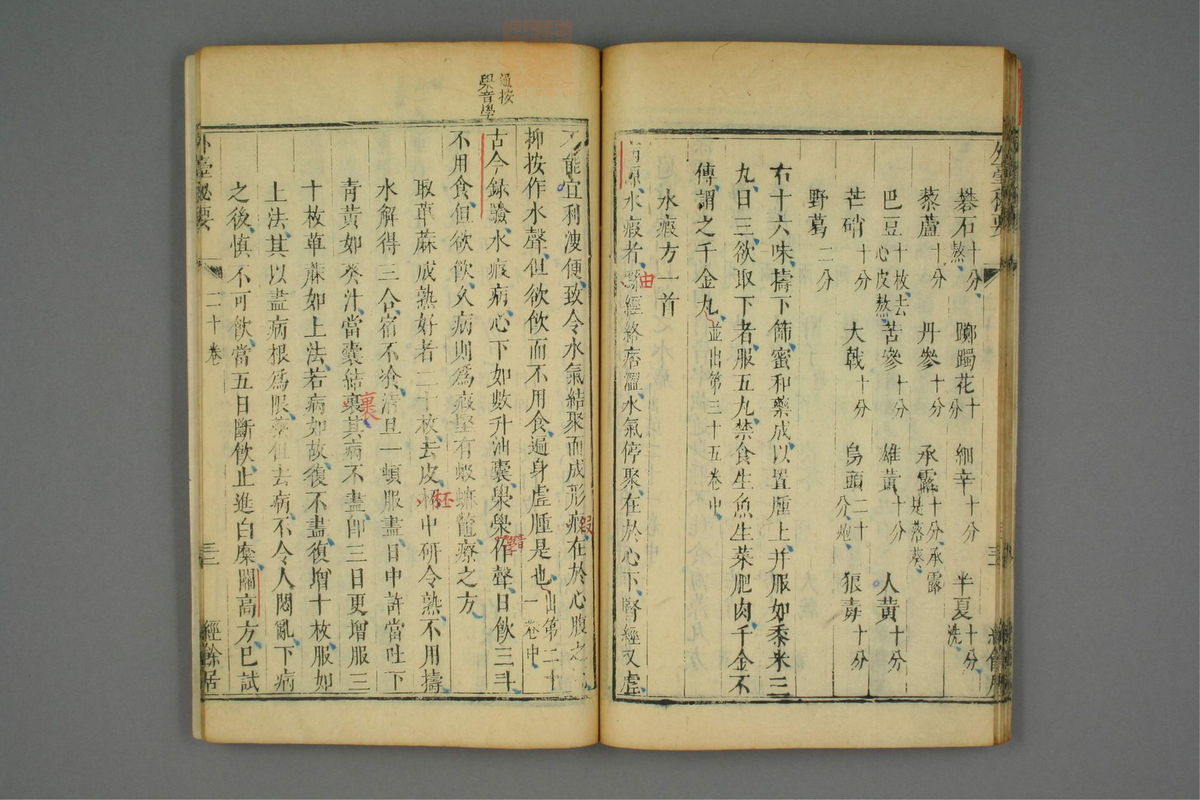 礬石十分熬 躑躅花十分 細辛十分 半夏十分洗
藜蘆十分 丹參十分 承露十分承露是落葵
巴豆十枚去心皮熬 苦參十分 雄黃十分 人黃十分
芒硝十分 大戟十分 烏頭二十分炮 狼毒十分
野葛二分
右十六味擣下篩蜜和藥成以置腫上并服如黍米三
丸日三欲取下者服五丸禁食生魚生菜肥肉千金不
傳謂之千金丸並出第三十五卷中
水瘕方一首
病源水瘕者由經絡痞澀水氣停聚在於心下腎經又虛
不能宜利溲便致令水氣結聚而成形瘕在於心腹之
抑按作水聲但欲飲而不用食遍身虛腫是也出第二十一卷中
古今錄驗水瘕病心下如數升油囊㶅㶅作聲日飲三斗
㶅音學
不用食但欲飲久病則為瘕堅有蝦蟇鼈療之方
取萆蔴成熟好者二十枚去皮杯中研令熟不用擣
水解得三合宿不飡清旦一頓服盡日中許當吐下
青黃如葵汁當囊結裹其病不盡即三日更增服三
裹
十枚萆蔴如上法若病如故復不盡復增十枚服如
上法其以盡病根為限藥但去病不令人悶亂下病
之後慎不可飲當五日斷飲止進白糜闞高方已試
外臺秘要
二十卷
三
經餘居